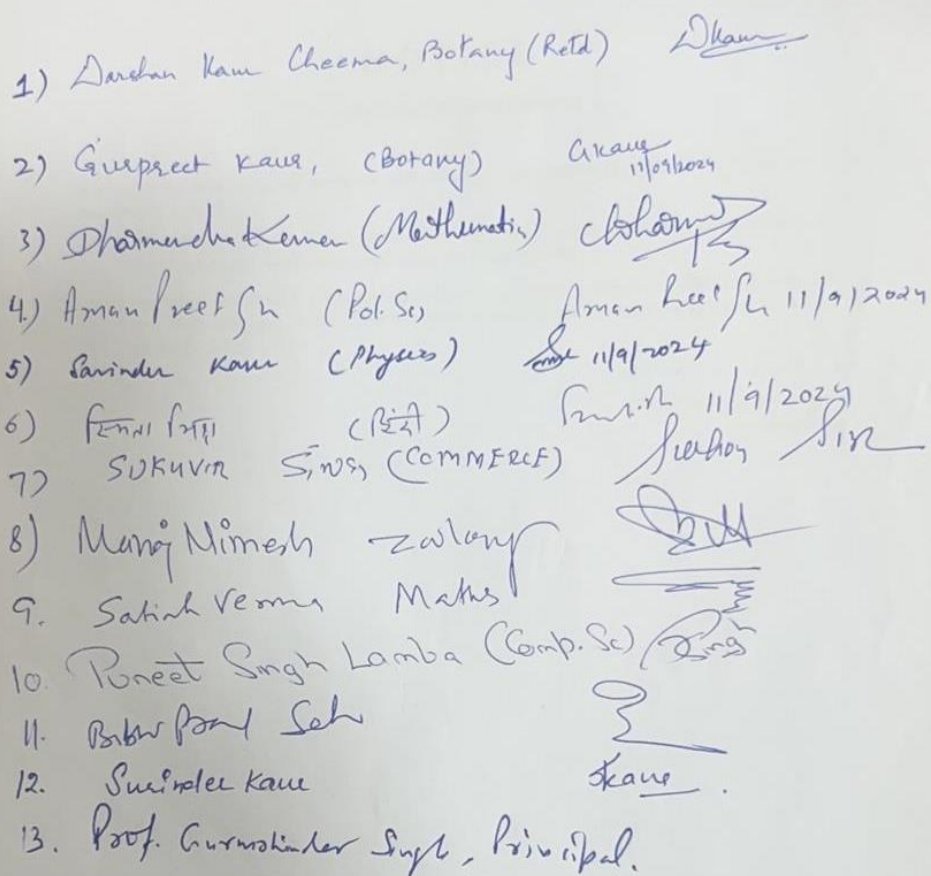 1) Darshan Kaur Cheema, Botany (Retd) Dkaur
2) Gurpreet Kaur, (Botany) GKaur 11/09/2024
3) Dharmendra Kumar (Mathematics)
4.) Aman Preet Sh (Pol. Sc) Aman Preet Sh 11/9/2024
5) Savinder Kaur (Physics) 11/9/2024
6) (हिंदी) 11/9/2024
7) SUKHVIR SINGH (COMMERCE)
8) Manoj Nimesh Zoology
9. Satish Verma Maths
10. Puneet Singh Lamba (Comp. Sc) Singh
11.
12. Surinder Kaur SKaur
13. Prof. Gurmohinder Singh, Principal.